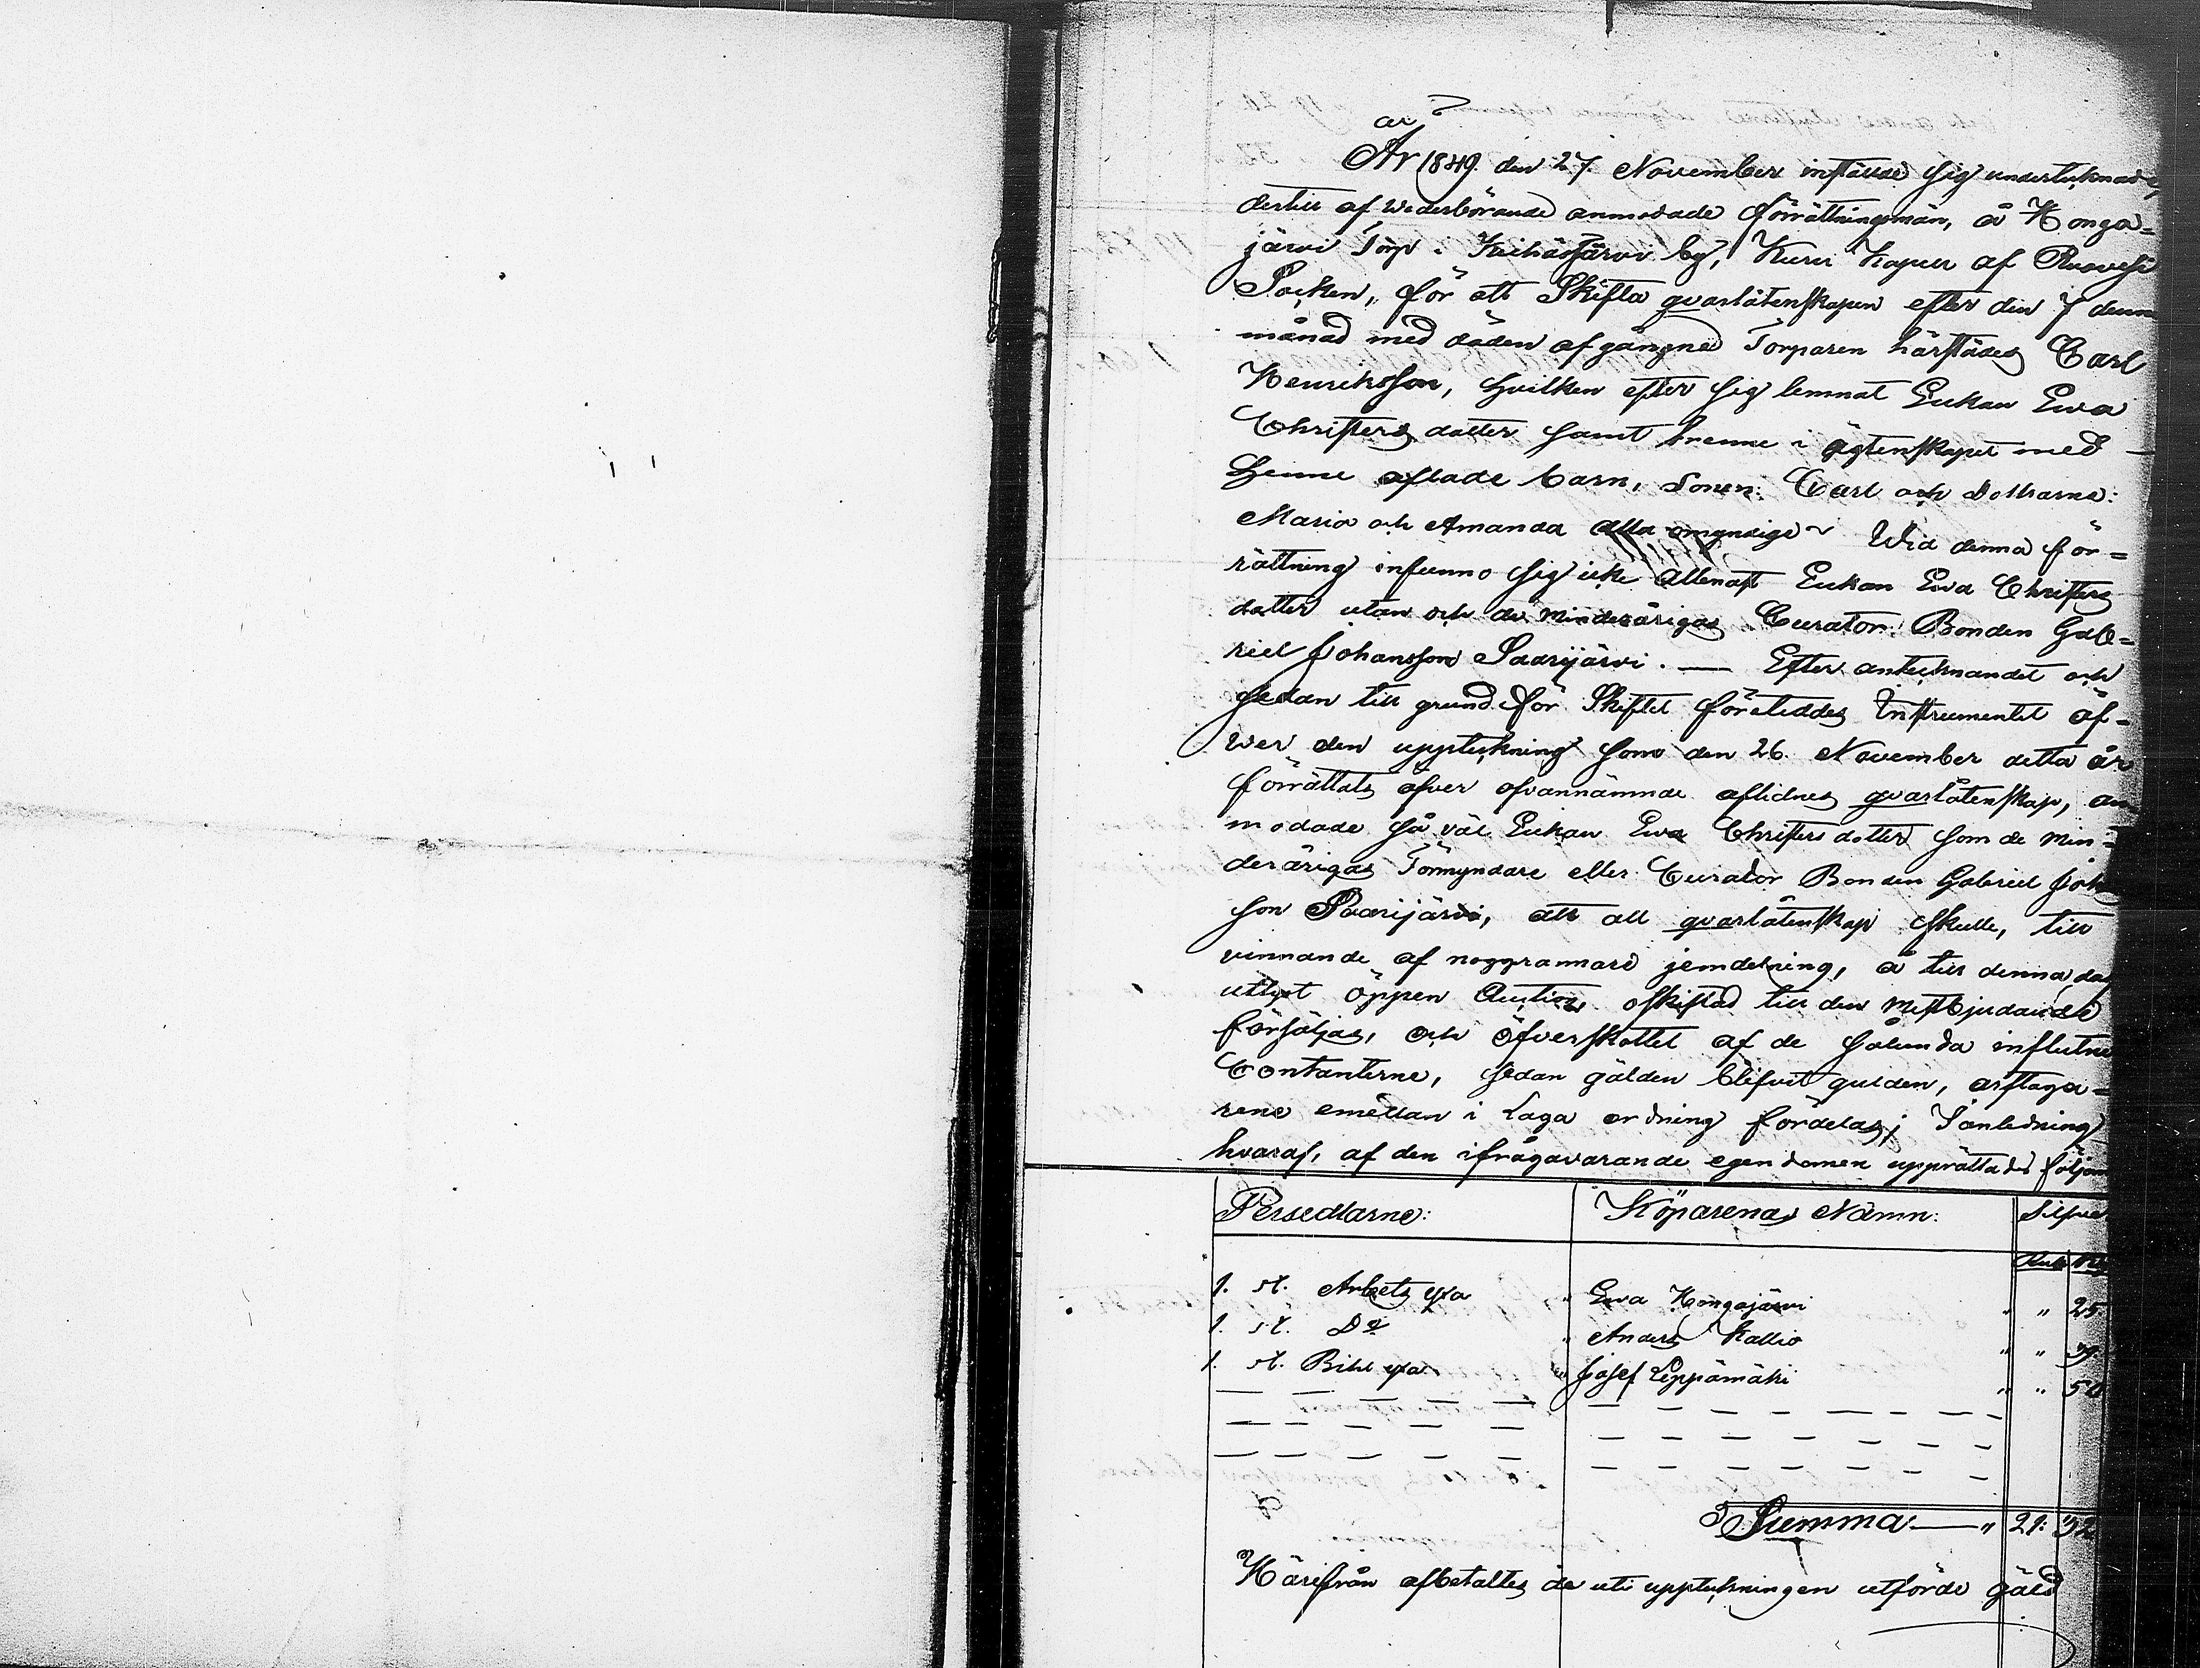 År 1849 den 27 November infände sig undertecknade,
dertill af wederbörande anmodade förrättningsmän, å Konga=
järvi Torp i Kuru Kapell af Ruovesi
Socken, för att Skifta qvarlåtenskapen efter den 7 denne
månad med döden afgångne Torparen härstädes Carl
Henriksson, hvilken efter sig lemnat Enkan Ewa
Christers dotter samt trenne i ägtenskapet med
henne aflade barn, Sonen: Carl och Dottrarne:
Maria och Amanda alla omyndige Wid denna för=
rättning infunno sig icke allenast Enkan Ewa Christers
dotter utan och de minderårigas Curator: Bonden Gab=
riel Johansson Saarijärvi. — Efter antecknandet och
sedan till grund för Skiftet företeddes Instrumentet öf=
wer den uppteckning som den 26 November detta år
förrättats öfver ofvannämnde aflidnes qvarlåtenskap, an
modade så väl Enkan Ewa Christers dotter som de Min=
derårigas Förmyndare eller Curator Bonden Gabriel Johans
son Saarijärvi, att all qvarlåtenskap skulle, till
vinnande af noggrannare jemdelning, å till denna dag
utlyst öppen Auction oskiftad till den Mestbjudande
försäljas, och Öfverskottet af de sålunda influtne
Contanterne, sedan gälden blifvit gulden, arftaga=
rene emellan i Laga ordning fördelas; I anledning
hvaraf, af den ifrågavarande egendomen upprättades följan
Persedlarne: Köparenas Namn: Silfver
Rub
1. st. Arbets yxa " Ewa Kongajärvi " " 25
1. st. Do " Anders Kallio " " 39.
1. st. Bihl yxa " Josef Leppämäki " " 50
— — — — — — — — — — — — —
— — — — — — — — — — — —
— — — — — — — — — — — —
Summa — " 21: 52
Härifrån afbetaltes de uti uppteckningen utförde gäld